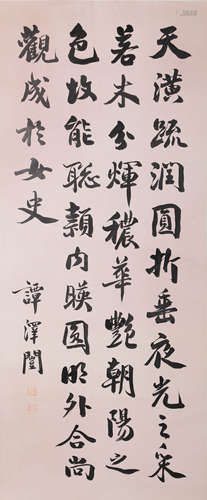 天潢疏润圆折垂夜光之采
若木分輝穠華艷朝陽之
色故能聡頴内暎圆明外合尚
觀成於女史
譚澤闓